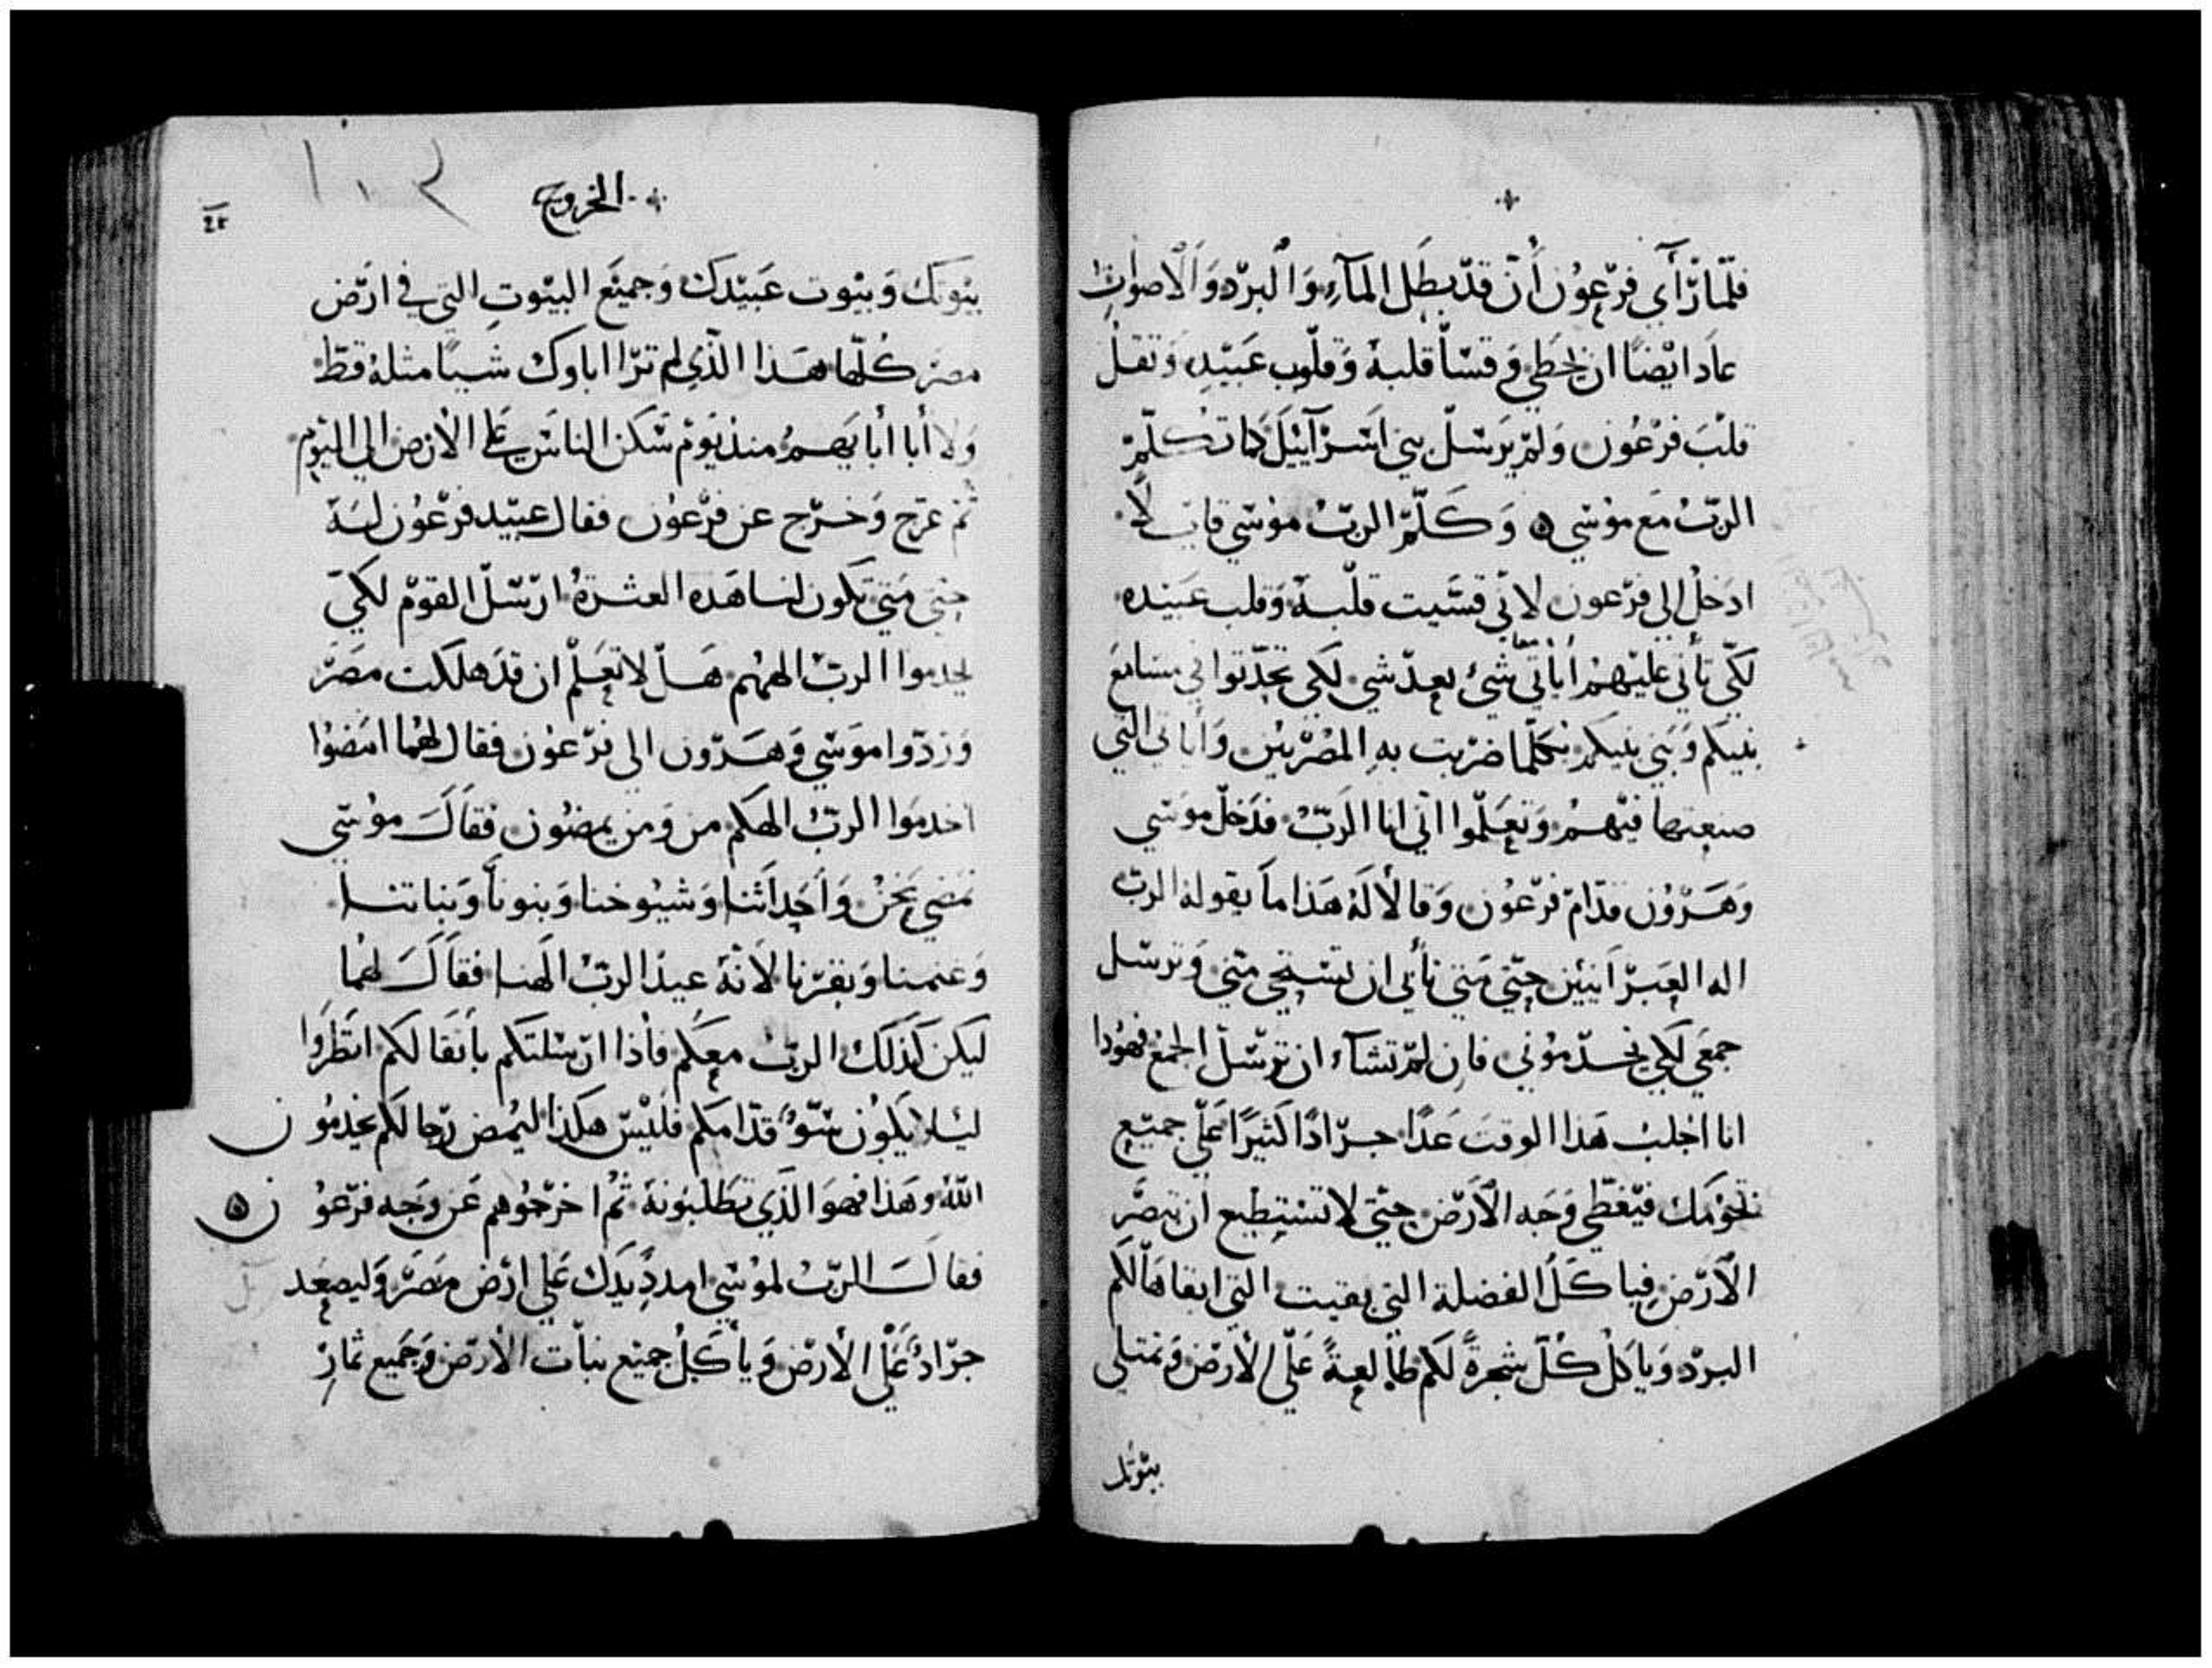 فلمّا رَّأَي فرّعوُن أن قدّ بطَل المآءِ وَالبرّد وَالأصوات
عاَد ايْضاً ان يخطي وَقسّا قلبهُ وَقلوب عَبيّدِهِ وَثقلُ
قلبَ فرْعُون وَلمْ يرَسْلّ بني اسَرَآئيْلَ كما تكلّمْ
الربّ مَع موُسْي ه وَكَلّمَ الربّ موُسْي قايلاً
ادَخلُ الي فرْعون لانّي قسَّيت قلْبهُ وَقلب عَبيْده
لكّي تأتي عَليْهمُ أياَتّي شيْ بعدّ شي لكي تحدّثوا في مسَامَع
بنيكم وَبَني بنيكمْ بكلّما ضرَبت بهِ المصْرّييْن وَأياتي التي
صنعتها فيْهمْ وَتعَلّموا انّي انا الرَبّ فدَخلّ موَسْي
وَهَرّوُن قدّامَ فرْعوُن وَقالاَ لَهُ هَذا ماَ يقولهُ الربّ
اله العِبرّاَنيْين حتّي مَتي تأبي ان تسْتحي منّي وَترسْل
جمعَي لكي يخدّموُني فاِن لمْ تشآء ان ترسّلّ الجمع فهوُذا
انا اجْلبْ هَذا الوقتَ غدًا جرّادًا كثيرًا عَلّي جميّع
تخوُمك فيْغطّي وَجَه الأرّض حتّي لا تسْتطيع ان تبصَّر
الأرّض فياكَلُ الفضلة التي بقيت التّي ابقاهاَ لكم
البرّد وَياكلُ كُلّ شجرةً لكم طاَلعةً عَلّي الأرّض وَتمتلي
بيّوتك
الخروج
١٠٣
٤٢
بيّوتك وَبيْوت عَبيْدك وَجميْع البيْوتِ التي في ارَّض
مصْر كُلّها هَذا الّذي لم ترّا اباوك شياً مثلهُ قطّ
وَلا أبا أبايهمُ منذ يَوْم سَكن الناسْ عَلي الأرض الي اليَوْم
ثمّ عرّج وَخرّج عن فرّعوُن فقال عبيْد فرّعوُن لهُ
حتّي مَتي تكوَن لنا هَذه العثرةُ ارّسْلّ القومْ لكيّ
يخدموا الربّ الههُم هَلّ لا تعَلمْ ان قدَ هلكت مصَرْ
وَردّوا موَسْي وَهَرّون الي فرّعوُن فقال لهُما امَضوُا
اخدموَا الربّ الهكم من وَمن يمضوُن فقاَلَ موُسْي
نمَضي نحَنُ وَأحدَاثنا وَشيُوخنا وَبنوناَ وَبناتنا
وَغنمنا وَبقرّنا لأنهُ عيدُ الربّ الَهنا فقاَلَ لهُما
ليكن كذَلك الربّ معكم فأذا ارّسَلتكم بأثقالكم انظَرَوا
ليَلا يكوُن سْوّ قدّامكم فليْسْ هكذا ليمُض رّجالكم يخدموُن
اللهُ وَهَذا فهوَ الذَي تطَلبوَنهُ ثمُ اخرْجوُهم عَن وَجَه فرّعوُن ه
فقالَ الربّ لموُسْي امددِ يَدَك عَلي ارّض مَصَر وَليصعَد
جرّادُ عَلّي الأرّض وَيأكلُ جميْع نباَت الأرّض وَجَميع ثمارّ